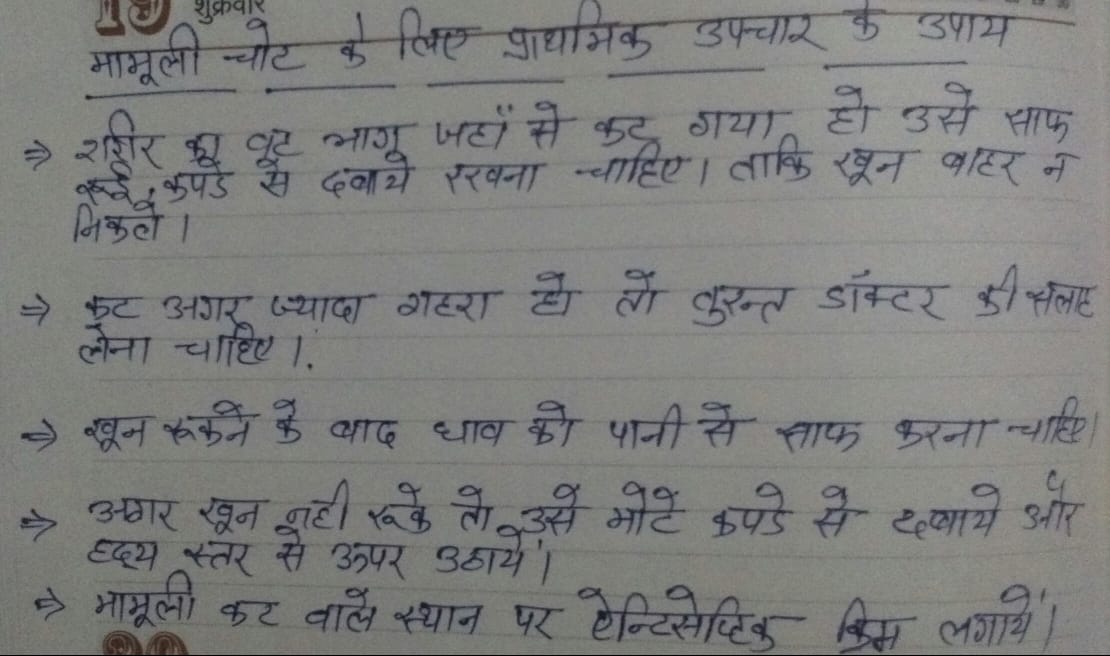 19 शुक्रवार
मामूली चोट के लिए प्राथमिक उपचार के उपाय
⇒ शरीर का वह भाग जहाँ से कट गया हो उसे साफ
रूई, कपडे से दबाये रखना चाहिए। ताकि खून बाहर न
निकले।
⇒ कट अगर ज्यादा गहरा हो तो तुरन्त डॉक्टर की सलाह
लेना चाहिए।
⇒ खून रूकने के बाद घाव को पानी से साफ करना चाहिए।
⇒ अगर खून नही रूके तो उसे मोटे कपडे से दबाये और
हृदय स्तर से ऊपर उठायें।
⇒ मामूली कट वाले स्थान पर ऐन्टिसेप्टिक क्रिम लगायें।
20